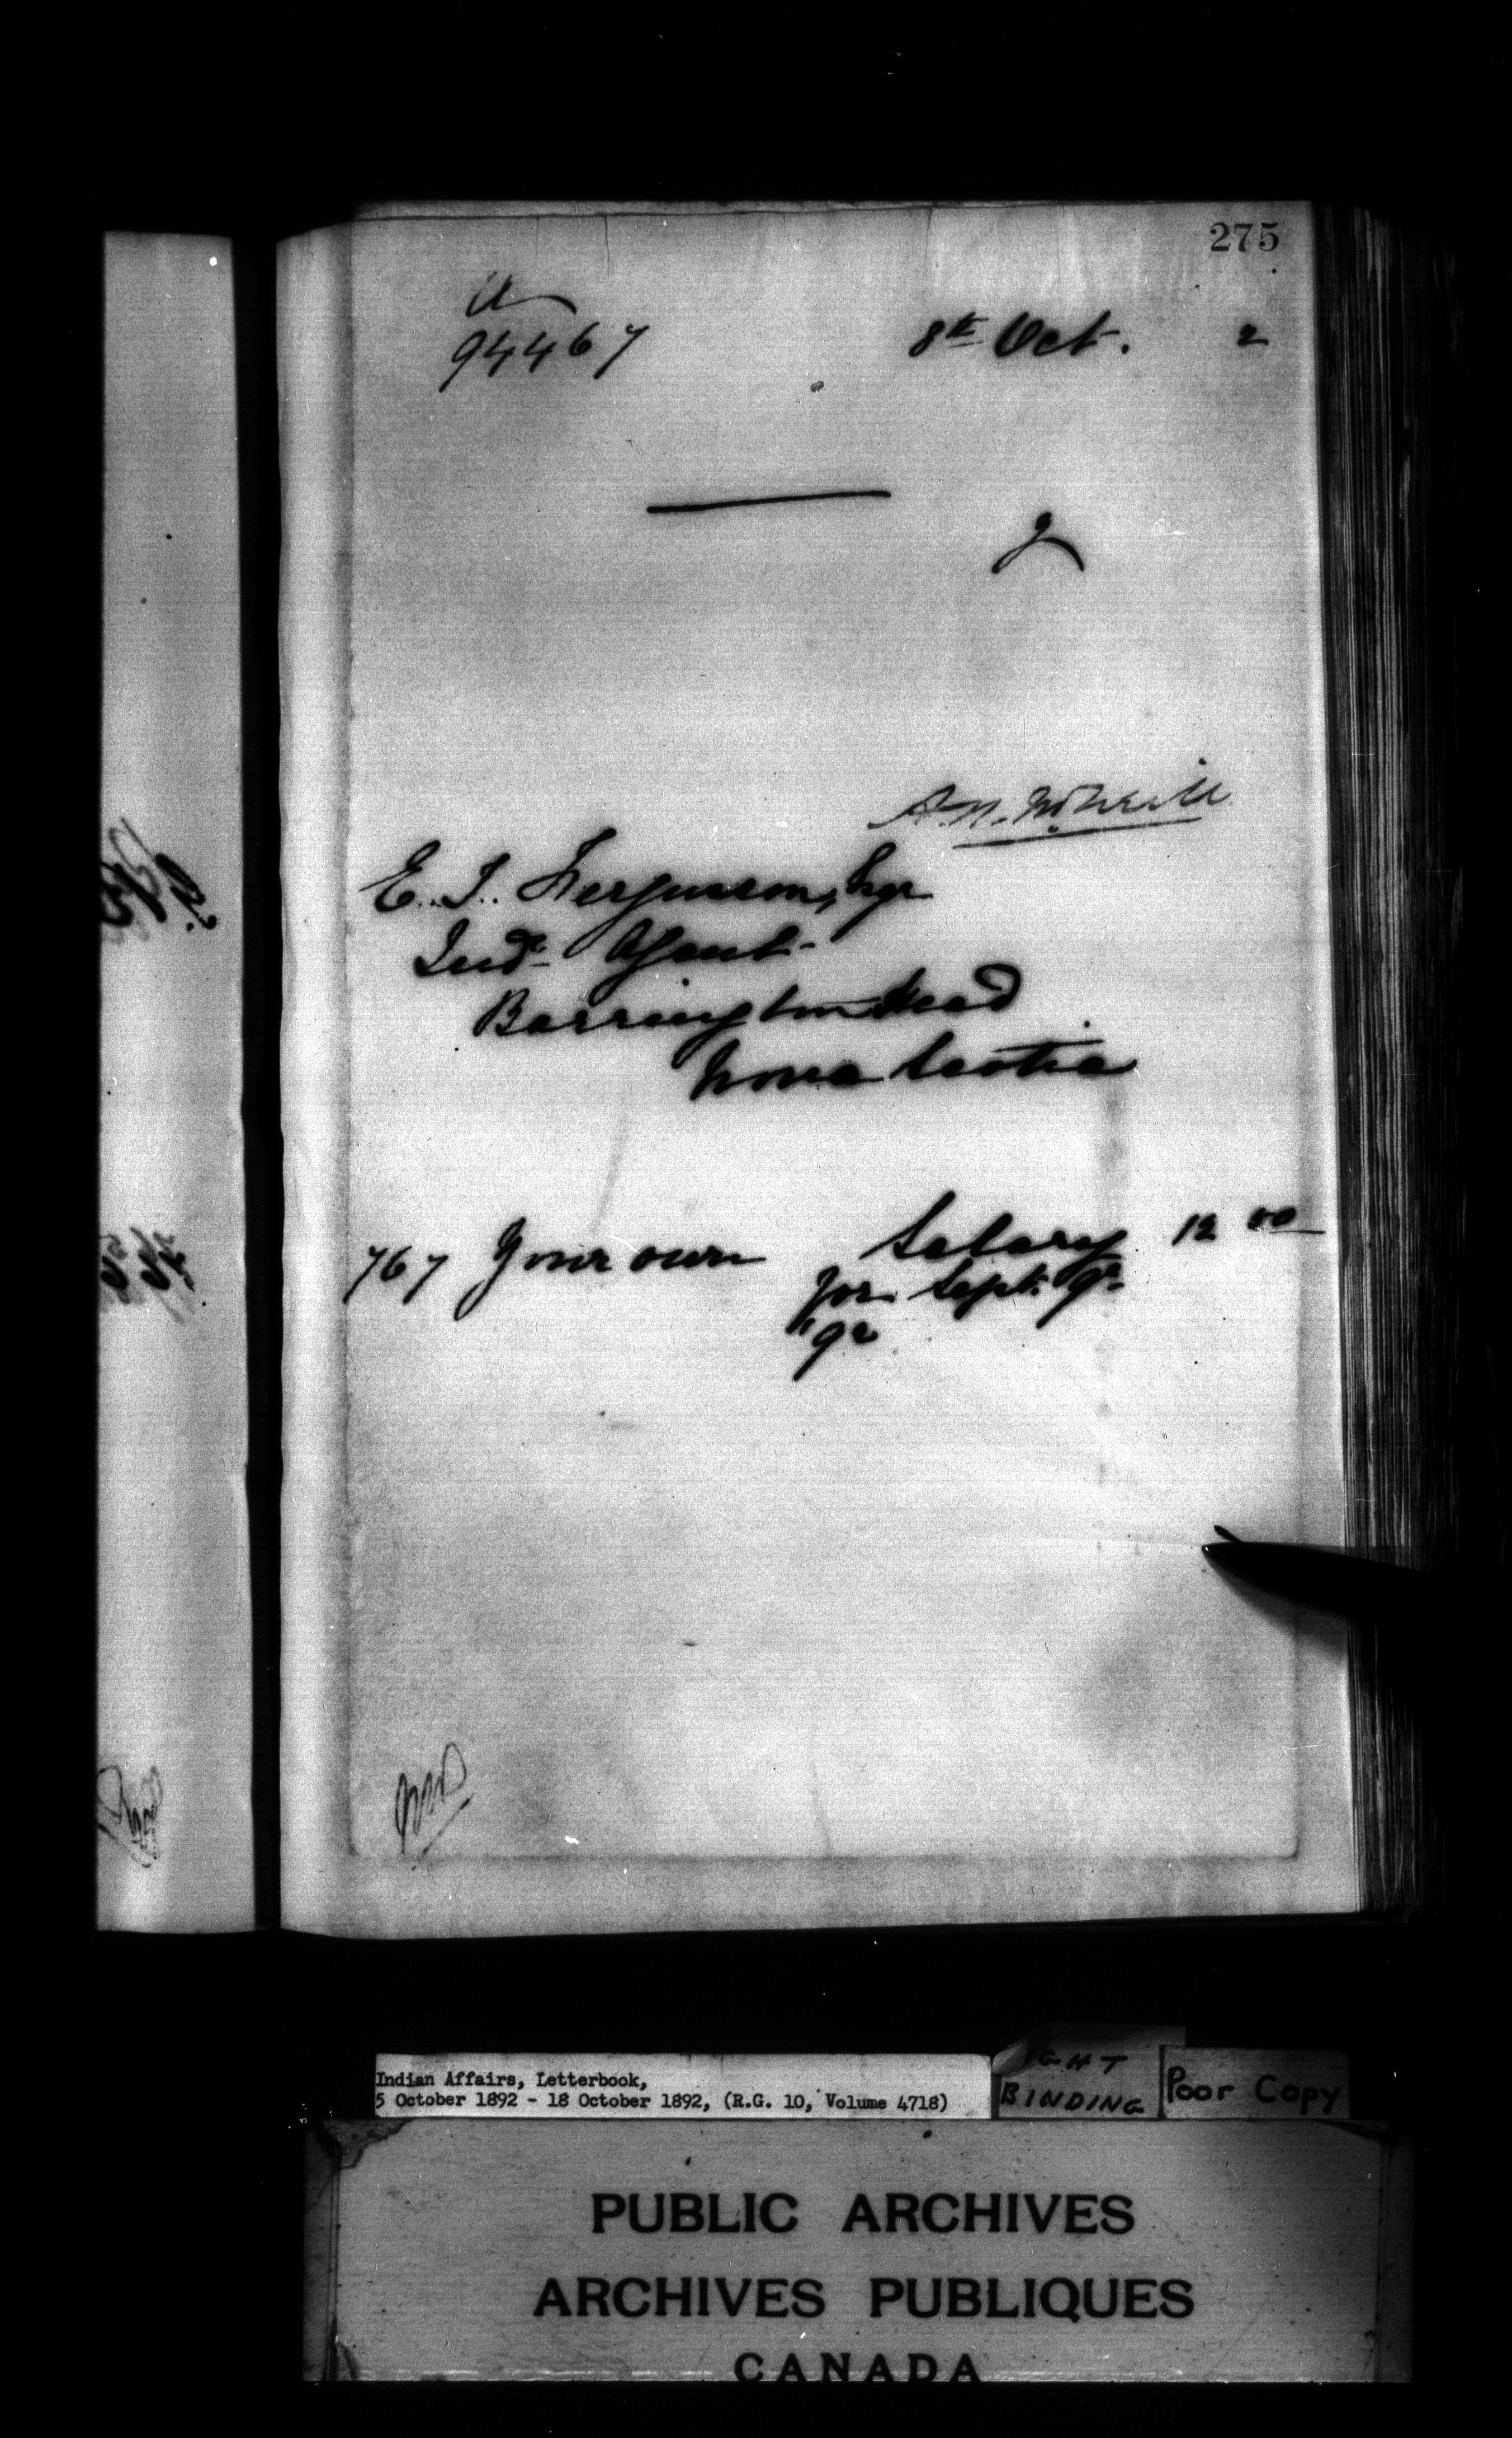 275
94467 8th Oct. 2
A.N. McNeill
E. J. Ferguson, Esqr
Indn Agent
Barrington Head
Nova Scotia
767 Your own Salary 12 00
for Sept. qr
'92
Indian Affairs, Letterbook,
5 October 1892 - 18 October 1892, (R.G. 10, Volume 4718)
GHT
BINDING
Poor Copy
PUBLIC ARCHIVES
ARCHIVES PUBLIQUES
CANADA